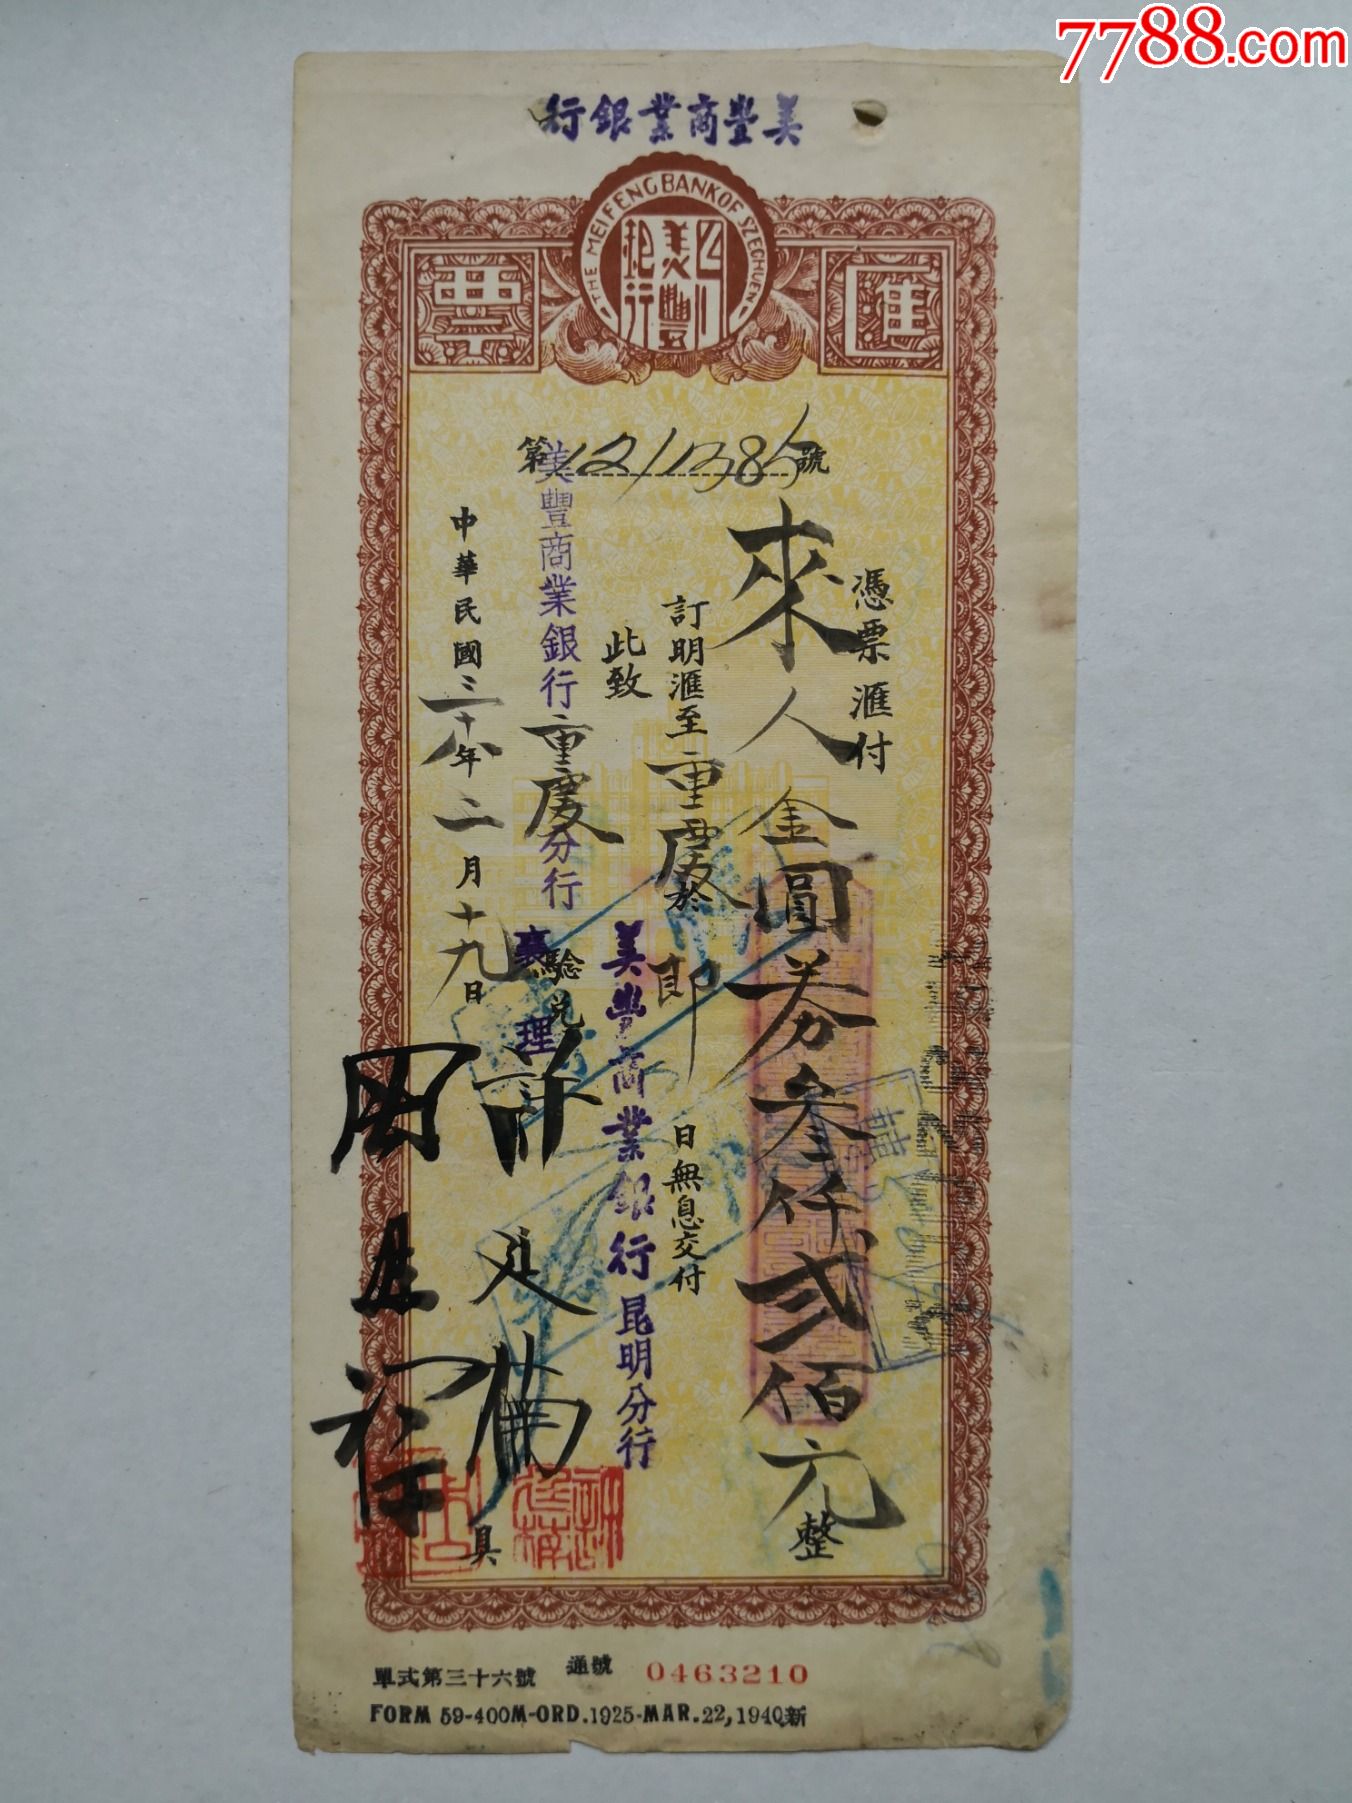 7788.com
美豐商業銀行
THE MEI FENG BANK OF SZECHUEN
四川美豐銀行
匯票
第 號
憑票滙付
來人金圓券叁仟弍佰元整
訂明滙至重慶於即日無息交付
此致
美豐商業銀行重慶分行 驗兌
美豐商業銀行昆明分行
襄理
許廷
具
中華民國三十八年二月十九日
單式第三十六號
通號 0463210
FORM 59-400M-ORD.1925-MAR.22,1940新